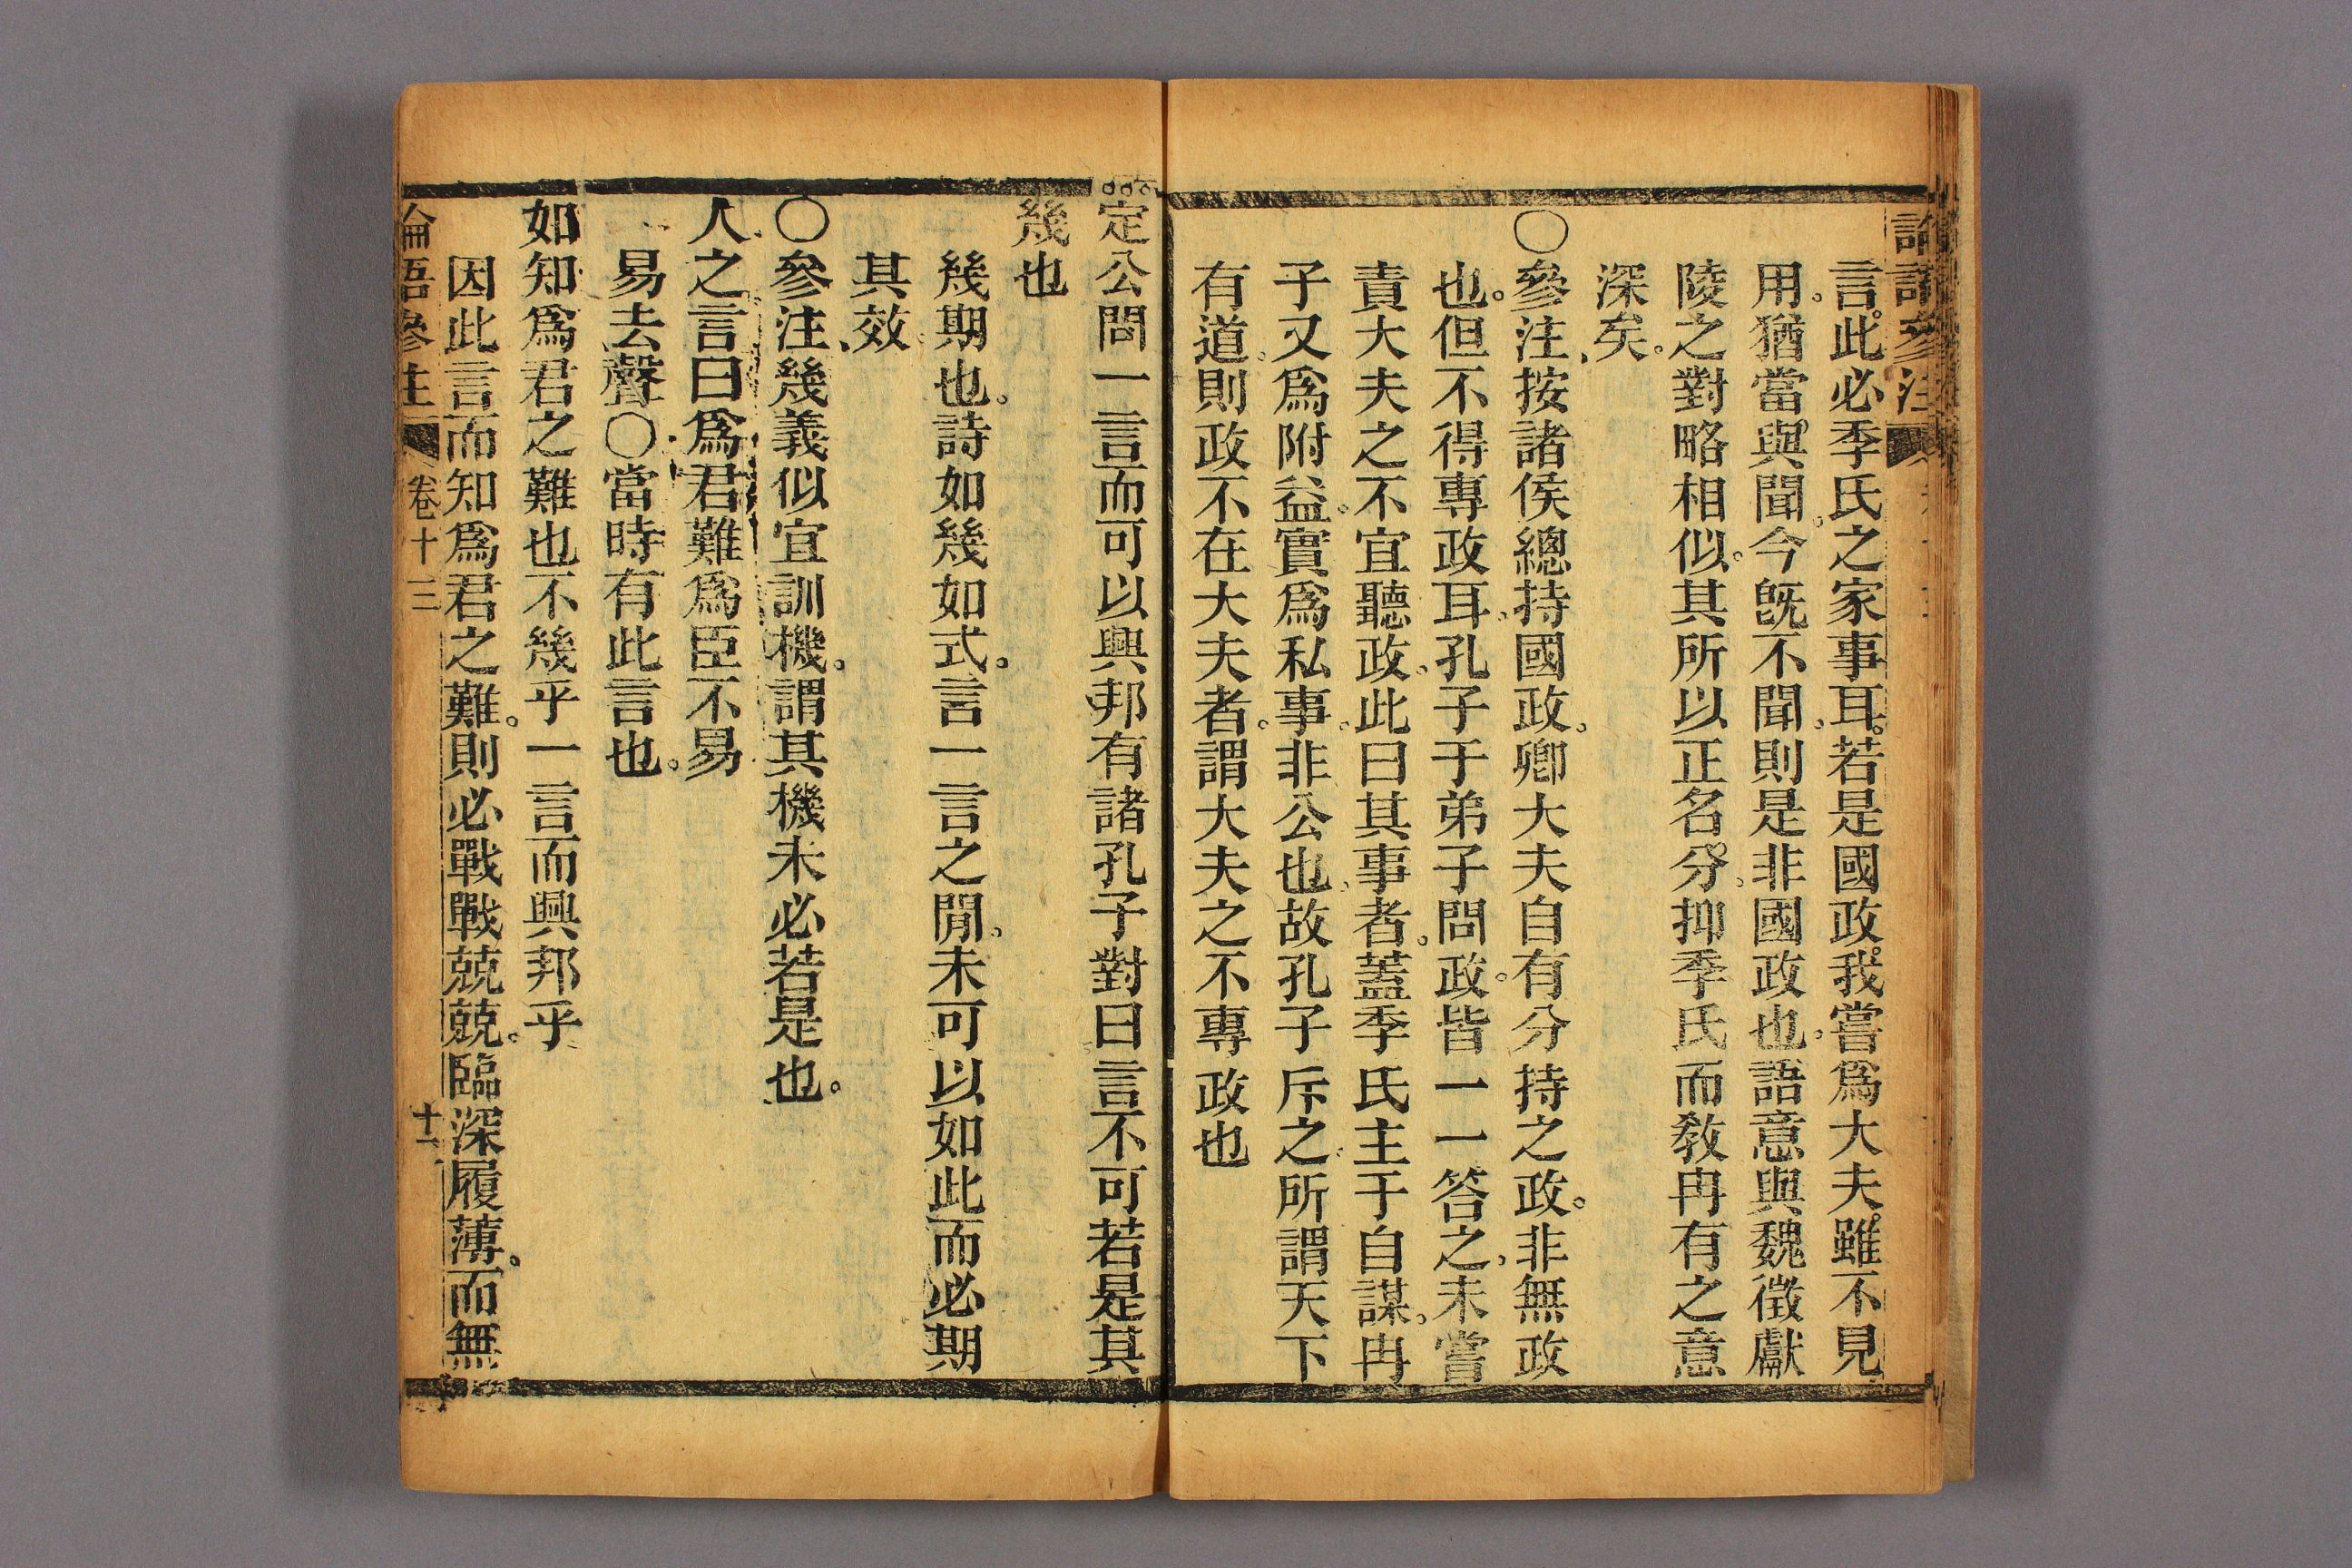 論語參注
言此必季氏之家事耳。若是國政。我嘗爲大夫。雖不見
用。猶當與聞。今旣不聞。則是非國政也。語意與魏徵獻
陵之對略相似。其所以正名分。抑季氏而敎冉有之意
深矣。
〇參注、按諸侯總持國政。卿大夫自有分持之政。非無政
也。但不得專政耳。孔子于弟子問政。皆一一答之。未嘗
責大夫之不宜聽政。此曰其事者。蓋季氏主于自謀。冉
子又爲附益。實爲私事。非公也。故孔子斥之。所謂天下
有道。則政不在大夫者。謂大夫之不專政也
定公問一言而可以興邦有諸孔子對曰言不可若是其
幾也
幾期也。詩如幾如式。言一言之閒。未可以如此而必期
其效。
〇參注、幾義似宜訓機。謂其機未必若是也。
人之言曰爲君難爲臣不易
易去聲〇當時有此言也。
如知爲君之難也不幾乎一言而興邦乎
因此言而知爲君之難。則必戰戰兢兢。臨深履薄。而無
論語參注 卷十三 十一